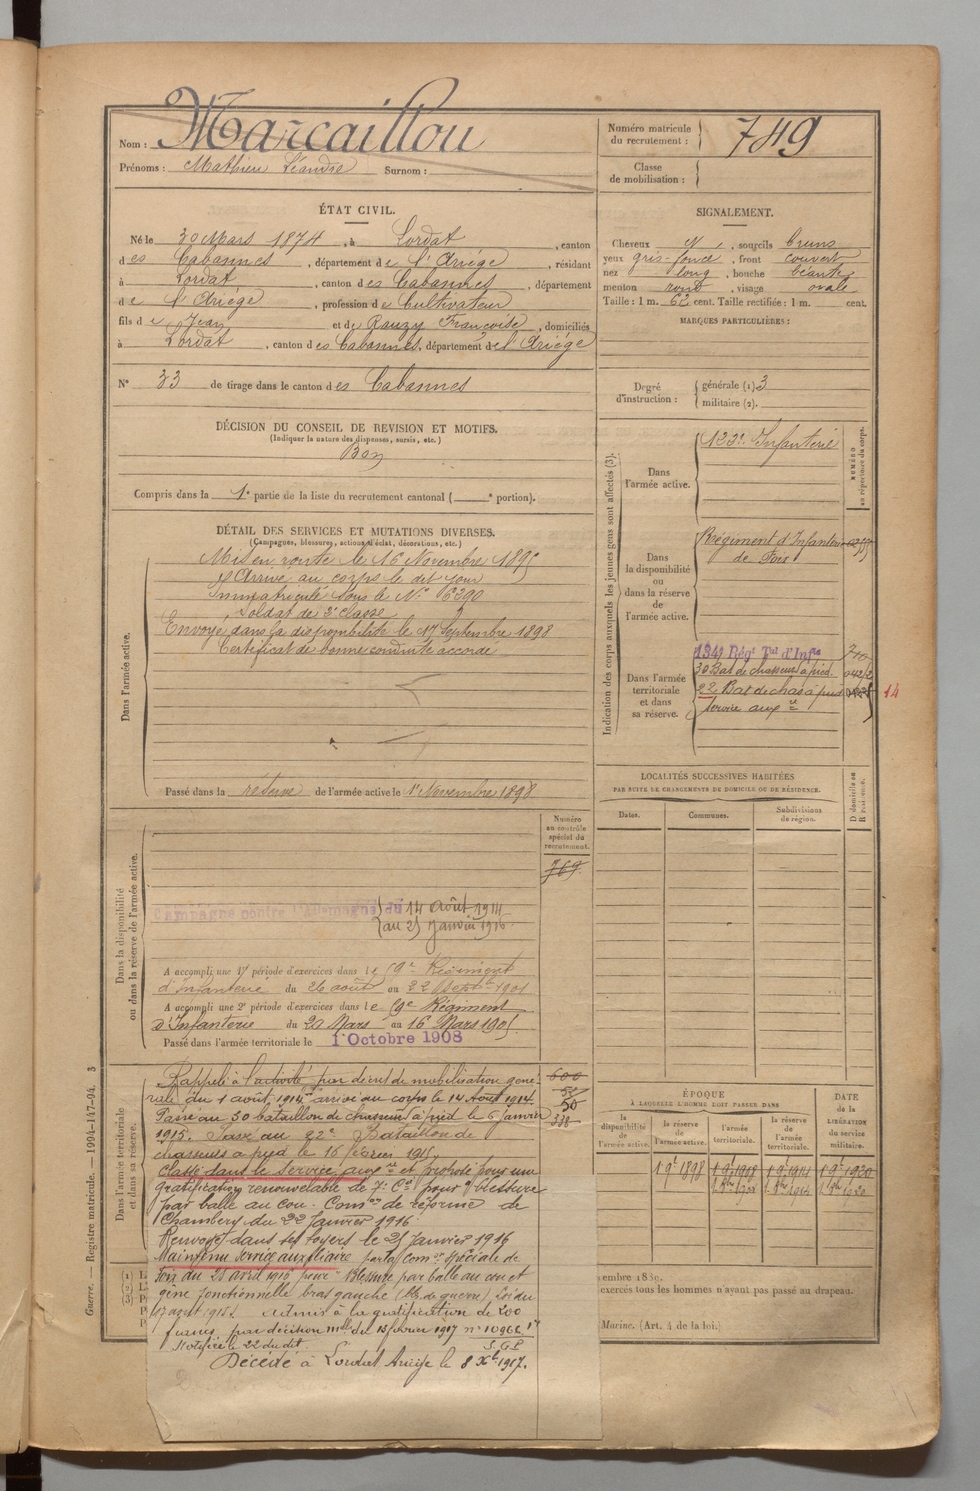 Nom : Marcaillou
Prénoms : Mathieu Léandre Surnom :
Numéro matricule du recrutement : 749
Classe de mobilisation :
ÉTAT CIVIL.
Né le 30 Mars 1874, à Lordat, canton
des Cabannes, département de l'Ariège, résidant
à Lordat, canton des Cabannes, département
de l'Ariège, profession de Cultivateur
fils de Jean et de Rauzy Françoise, domiciliés
à Lordat, canton des Cabannes, département de l'Ariège
N° 33 de tirage dans le canton des Cabannes
SIGNALEMENT.
Cheveux , sourcils bruns
yeux gris-foncé, front couvert
nez long, bouche béante
menton rond, visage ovale
Taille : 1 m. 62 cent. Taille rectifiée : 1 m. cent.
MARQUES PARTICULIÈRES :
Degré d'instruction : générale (1). 3
militaire (2).
DÉCISION DU CONSEIL DE REVISION ET MOTIFS.
(Indiquer la nature des dispenses, sursis, etc.)
Bon
Compris dans la 1e partie de la liste du recrutement cantonal ( e portion).
DÉTAIL DES SERVICES ET MUTATIONS DIVERSES.
(Campagnes, blessures, actions d'éclat, décorations, etc.)
Dans l'armée active.
Mis en route le 16 Novembre 1895
Arrivé au corps le dit jour
Immatriculé sous le N° 6390
Soldat de 2e classe
Envoyé dans la disponibilité le 17 Septembre 1898
Certificat de bonne conduite accordé
Passé dans la réserve de l'armée active le 1 Novembre 1898
Indication des corps auxquels les jeunes gens sont affectés (3).
NUMÉRO au répertoire du corps.
Dans l'armée active.
123e Infanterie
Dans la disponibilité ou dans la réserve de l'armée active.
Régiment d'Infanterie
de Foix
Dans l'armée territoriale et dans sa réserve.
134e Régt Tal d'Infie
30 Bat de chasseurs à pied.
22 Bat de chas à pied
Service auxre
14
LOCALITÉS SUCCESSIVES HABITÉES
PAR SUITE DE CHANGEMENTS DE DOMICILE OU DE RÉSIDENCE.
Dates. Communes. Subdivisions de région. D domicile ou R résidence.
Dans la disponibilité ou dans la réserve de l'armée active.
Numéro au contrôle spécial du recrutement.
769
Campagne contre l'Allemagne du 14 Août 1914
au 25 Janvier 1916
A accompli une 1re période d'exercices dans le 59e Régiment
d'Infanterie du 26 août au 22 Septbre 1901
A accompli une 2e période d'exercices dans le 59e Régiment
d'Infanterie du 20 Mars au 16 Mars 1905.
Passé dans l'armée territoriale le 1 Octobre 1908
Dans l'armée territoriale et dans sa réserve.
Rappelé à l'activité par décret de mobilisation géné-
rale du 1 août 1914 arrivé au corps le 14 Août 1914
Passé au 30 bataillon de chasseurs à pied le 6 janvier
1915. Passé au 22e Bataillon de
chasseurs à pied le 16 février 1915.
Classé dans le service auxre et proposé pour une
gratification renouvelable de 7e Cie pour blessure
par balle au cou. Comon de réforme de
Chambéry du 22 Janvier 1916.
Renvoyé dans ses foyers le 25 Janvier 1916
Maintenu service auxiliaire par la Comon spéciale de
Foix du 28 avril 1916 pour Blessure par balle au cou et
gêne fonctionnelle bras gauche (Bl. de guerre) Loi du
17 août 1915. Admis à la gratification de 200
francs par décision mlle du 13 février 1917 n° 10966
Notifiée le 22 du dit.
Décédé à Lordat Ariège le 8 Xbre 1917.
600
50
338
ÉPOQUE
À LAQUELLE L'HOMME DOIT PASSER DANS
la disponibilité de l'armée active. la réserve de l'armée active. l'armée territoriale. la réserve de l'armée territoriale.
DATE de la LIBÉRATION du service militaire.
embre 1889.
exercés tous les hommes n'ayant pas passé au drapeau.
Marine. (Art. 4 de la loi.)
Guerre. — Registre matricule. — 1994-147-94. 3